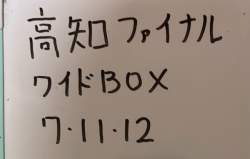 高知ファイナル
ワイドBOX
7・11・12